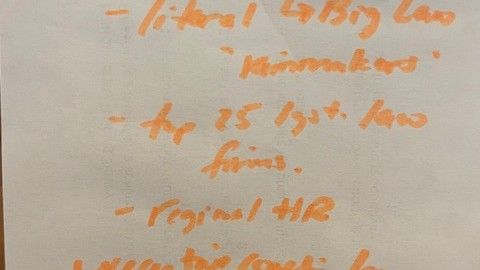 - literal to Big Law
"Rainmakers"
- top 25 lgst. law
firms.
- reginal HR